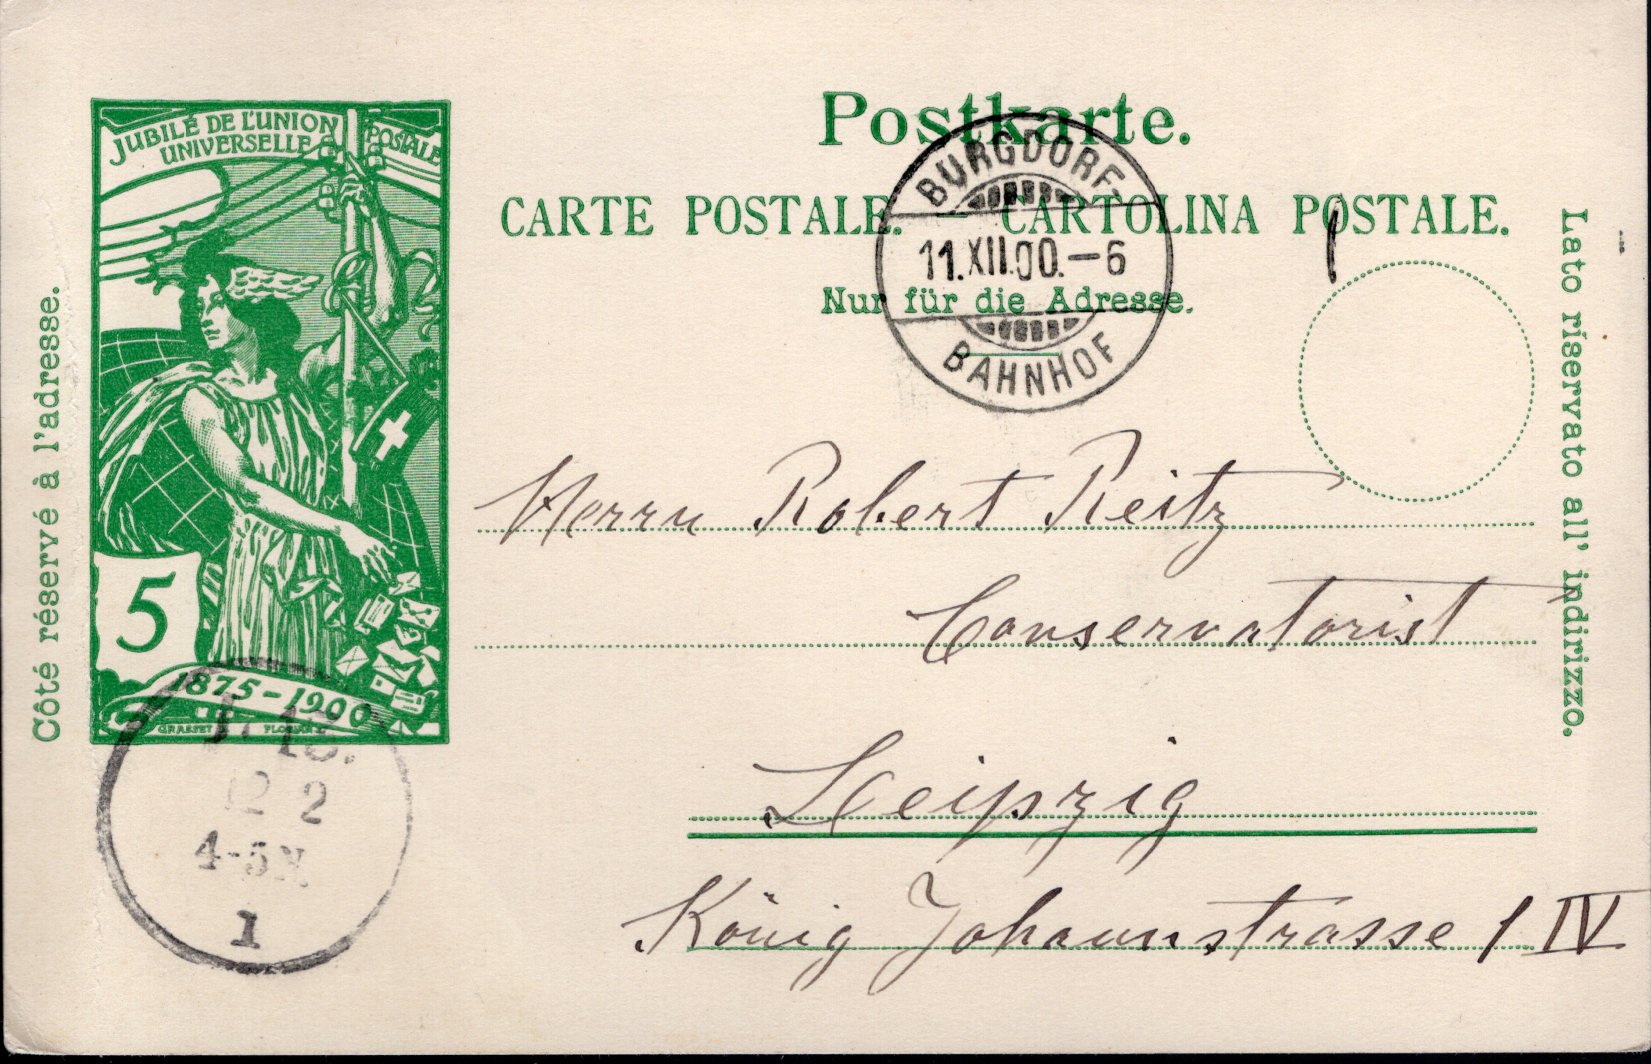 JUBILÉ DE L'UNION POSTALE
UNIVERSELLE
5
1875-1900
GRASSET
Côté réservé à l'adresse.
Postkarte.
CARTE POSTALE. CARTOLINA POSTALE.
Nur für die Adresse.
BURGDORF
11.XII.00.—6
BAHNHOF
Lato riservato all' indirizzo.
Herrn Robert Reitz
Conservatorist
Leipzig
König Johannstrasse 1 IV
12 2
4-5N.
1